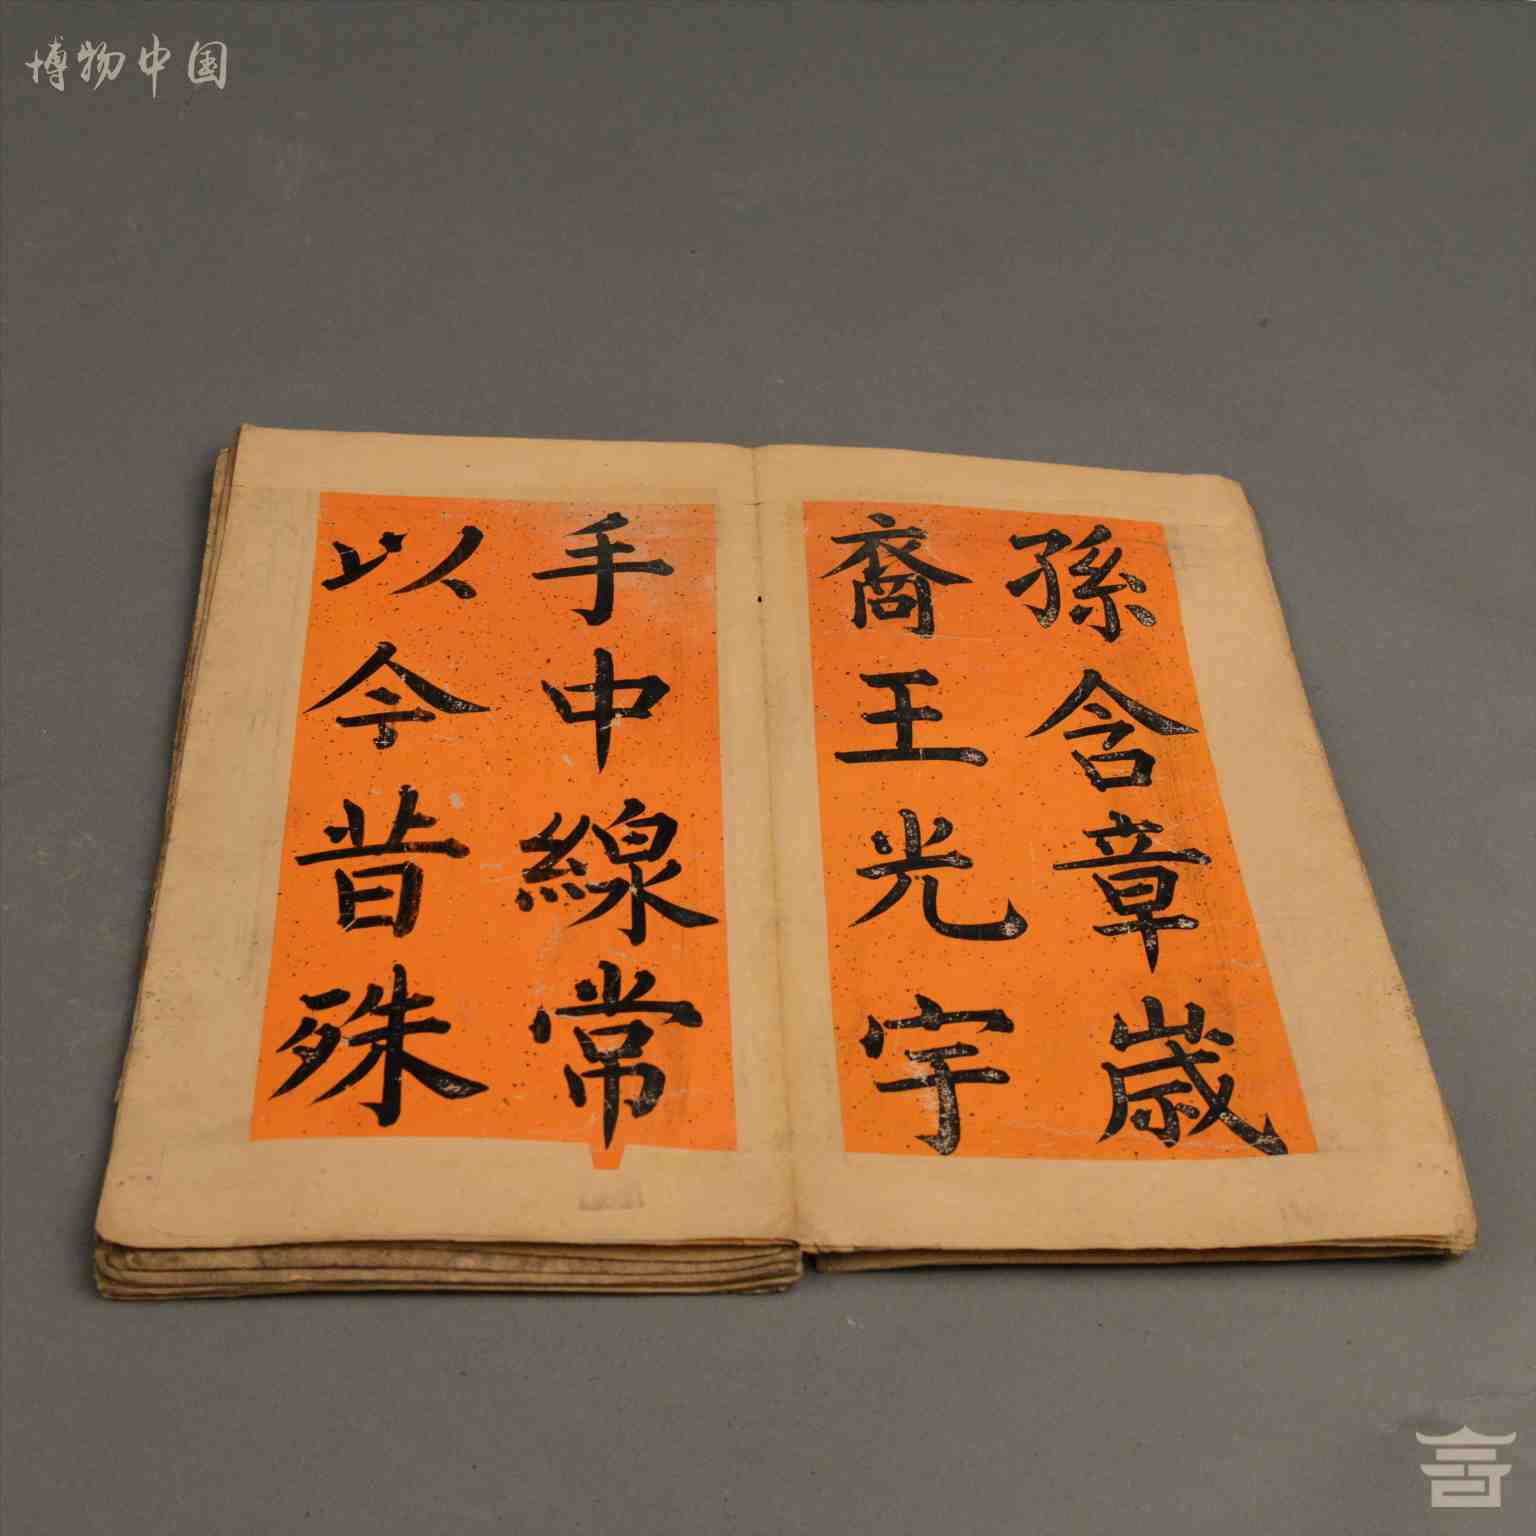 博物中国
孫含章歲
裔王光宇
手中線常
以今昔殊